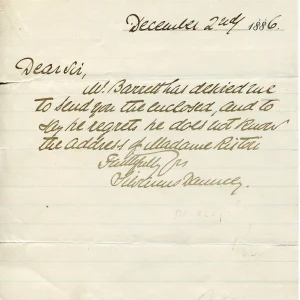 December 2nd, 1886.
Dear Sir,
Mr. Barrett has desired me
to send you the enclosed, and to
say he regrets he does not know
the address of Madame Ristori
Faithfully yrs